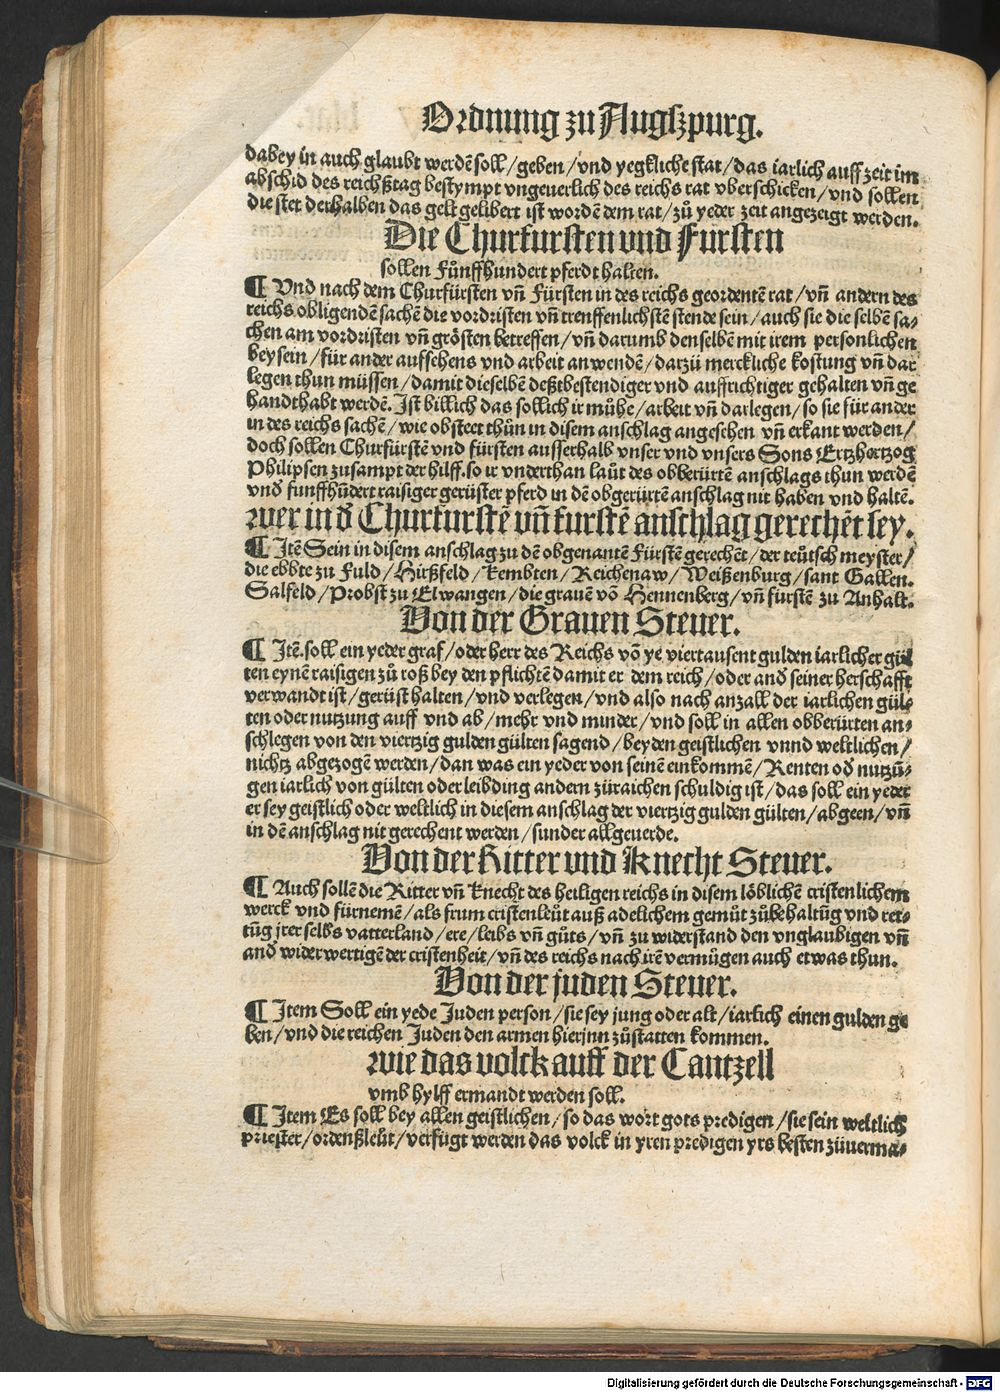 Ordnung zu Augszpurg.
dabey in auch glaubt werdē soll / geben / vnd yegkliche stat / das iarlich auff zeit im
abschid des reichßtag bestympt vngeuerlich des reichs rat vberschicken / vnd sollen
die stet derhalben das gelt gelibert ist wordē dem rat / zů yeder zeit angezeigt werden.
Die Churfursten vnd Fursten
sollen Fůnffhundert pferdt halten.
¶ Vnd nach dem Churfürsten vñ Fürsten in des reichs geordentē rat / vñ andern des
reichs obligendē sachē die vordristen vñ trenffenlichstē stende sein / auch sie die selbēn sa⸗
chen am vordristen vñ grösten betreffen / vñ darumb denselbē mit irem personlichen
beysein / für ander auffsehens vnd arbeit anwendē / darzü merckliche kostung vñ dar
legen thun müssen / damit dieselbē deßtbestendiger vnd auffrichtiger gehalten vñ ge
handthabt werdē. Ist billich das sollich ir mühe / arbeit vñ darlegen / so sie für ander
in des reichs sachē / wie obsteet thůn in disem anschlag angesehen vñ erkant werden /
doch sollen Churfürstē vnd fürsten ausserhalb vnser vnd vnsers Sons Ertzhertzog
Philipsen zusampt der hilff. so ir vnderthan laůt des obberürtē anschlags thun werdē
vnd̄ funffhūdert raisiger gerüster pferd in dē obgerürtē anschlag nit haben vnd haltē.
wer in d̄ Churfurstē vñ furstē anschlag gerechēt sey.
¶ Itē Sein in disem anschlag zu dē obgenantē Fürstē gerechēt / der teütsch meyster /
die ebbte zu Fuld / Hirßfeld / Kembten / Reichenaw / Weißenburg / sant Gallen.
Salfeld / Probst zu Elwangen / die grauē võ Hennenberg / vñ furstē zu Anhalt.
Von der Grauen Steuer.
¶ Itē. soll ein yeder graf / oder herr des Reichs võ ye viertausent gulden iarlicher gül
ten eynē raisigen zů roß bey den pflichtē damit er dem reich / oder and̄ seiner herschafft
verwandt ist / gerüst halten / vnd verlegen / vnd also nach anzall der iarlichen gül⸗
ten oder nutzung auff vnd ab / mehr vnd minder / vnd soll in allen obberürten an⸗
schlegen von den viertzig gulden gülten sagend / bey den geistlichen vnnd weltlichen /
nichtz abgezogē werden / dan was ein yeder von seinē einkommē / Renten od̄ nutzū⸗
gen iarlich von gülten oder leibding andern züraichen schuldig ist / das soll ein yeder
er sey geistlich oder weltlich in diesem anschlag der viertzig gulden gülten / abgeen / vñ
in dē anschlag nit gerechent werden / sunder allgeuerde.
Von der Ritter vnd Knecht Steuer.
¶ Auch sollē die Ritter vñ Knecht des heiligen reichs in disem löblichē cristenlichem
werck vnd fürnemē / als frum cristenleůt auß adelichem gemůt zůbehaltūg vnd ret⸗
tūg jrer selbs vatterland / ere / leibs vñ gůts / vñ zu widerstand den vnglaubigen vñ
and̄ widerwertigē der cristenheit / vñ des reichs nach irē vermůgen auch etwas thun.
Von der juden Steuer.
¶ Item Soll ein yede Juden person / sie sey jung oder alt / iarlich einen gulden ge
ben / vnd die reichen Juden den armen hierjnn zůstatten kommen.
wie das volck auff der Cantzell
vmb hylff ermandt werden soll.
¶ Item Es soll bey allen geistlichen / so das wort gots predigen / sie sein weltlich
priester / ordenßleůt / verfügt werden das volck in yren predigen yrs besten züuerma⸗
Digitalisierung gefördert durch die Deutsche Forschungsgemeinschaft - DFG